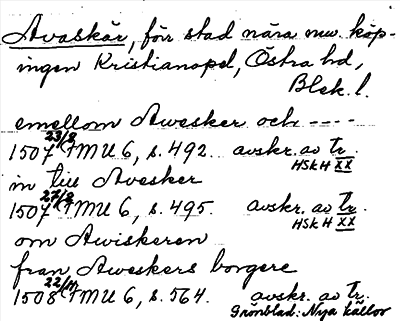 Avaskär, förr stad nära nuv. köp-
ingen Kristianopel, Östra hd,
Blek. l.
emellom Awesker och ----
1507 23/8 FMU 6, s. 492. avskr. av tr.
HSkH XX
in till Avesker
1507 27/8 FMU 6, s. 495. avskr. av tr.
HSkH XX
om Awiskeren
fran Aweskers borgere
1508 22/11 FMU 6, s. 564. avskr. av tr.
Grönblad: Nya källor